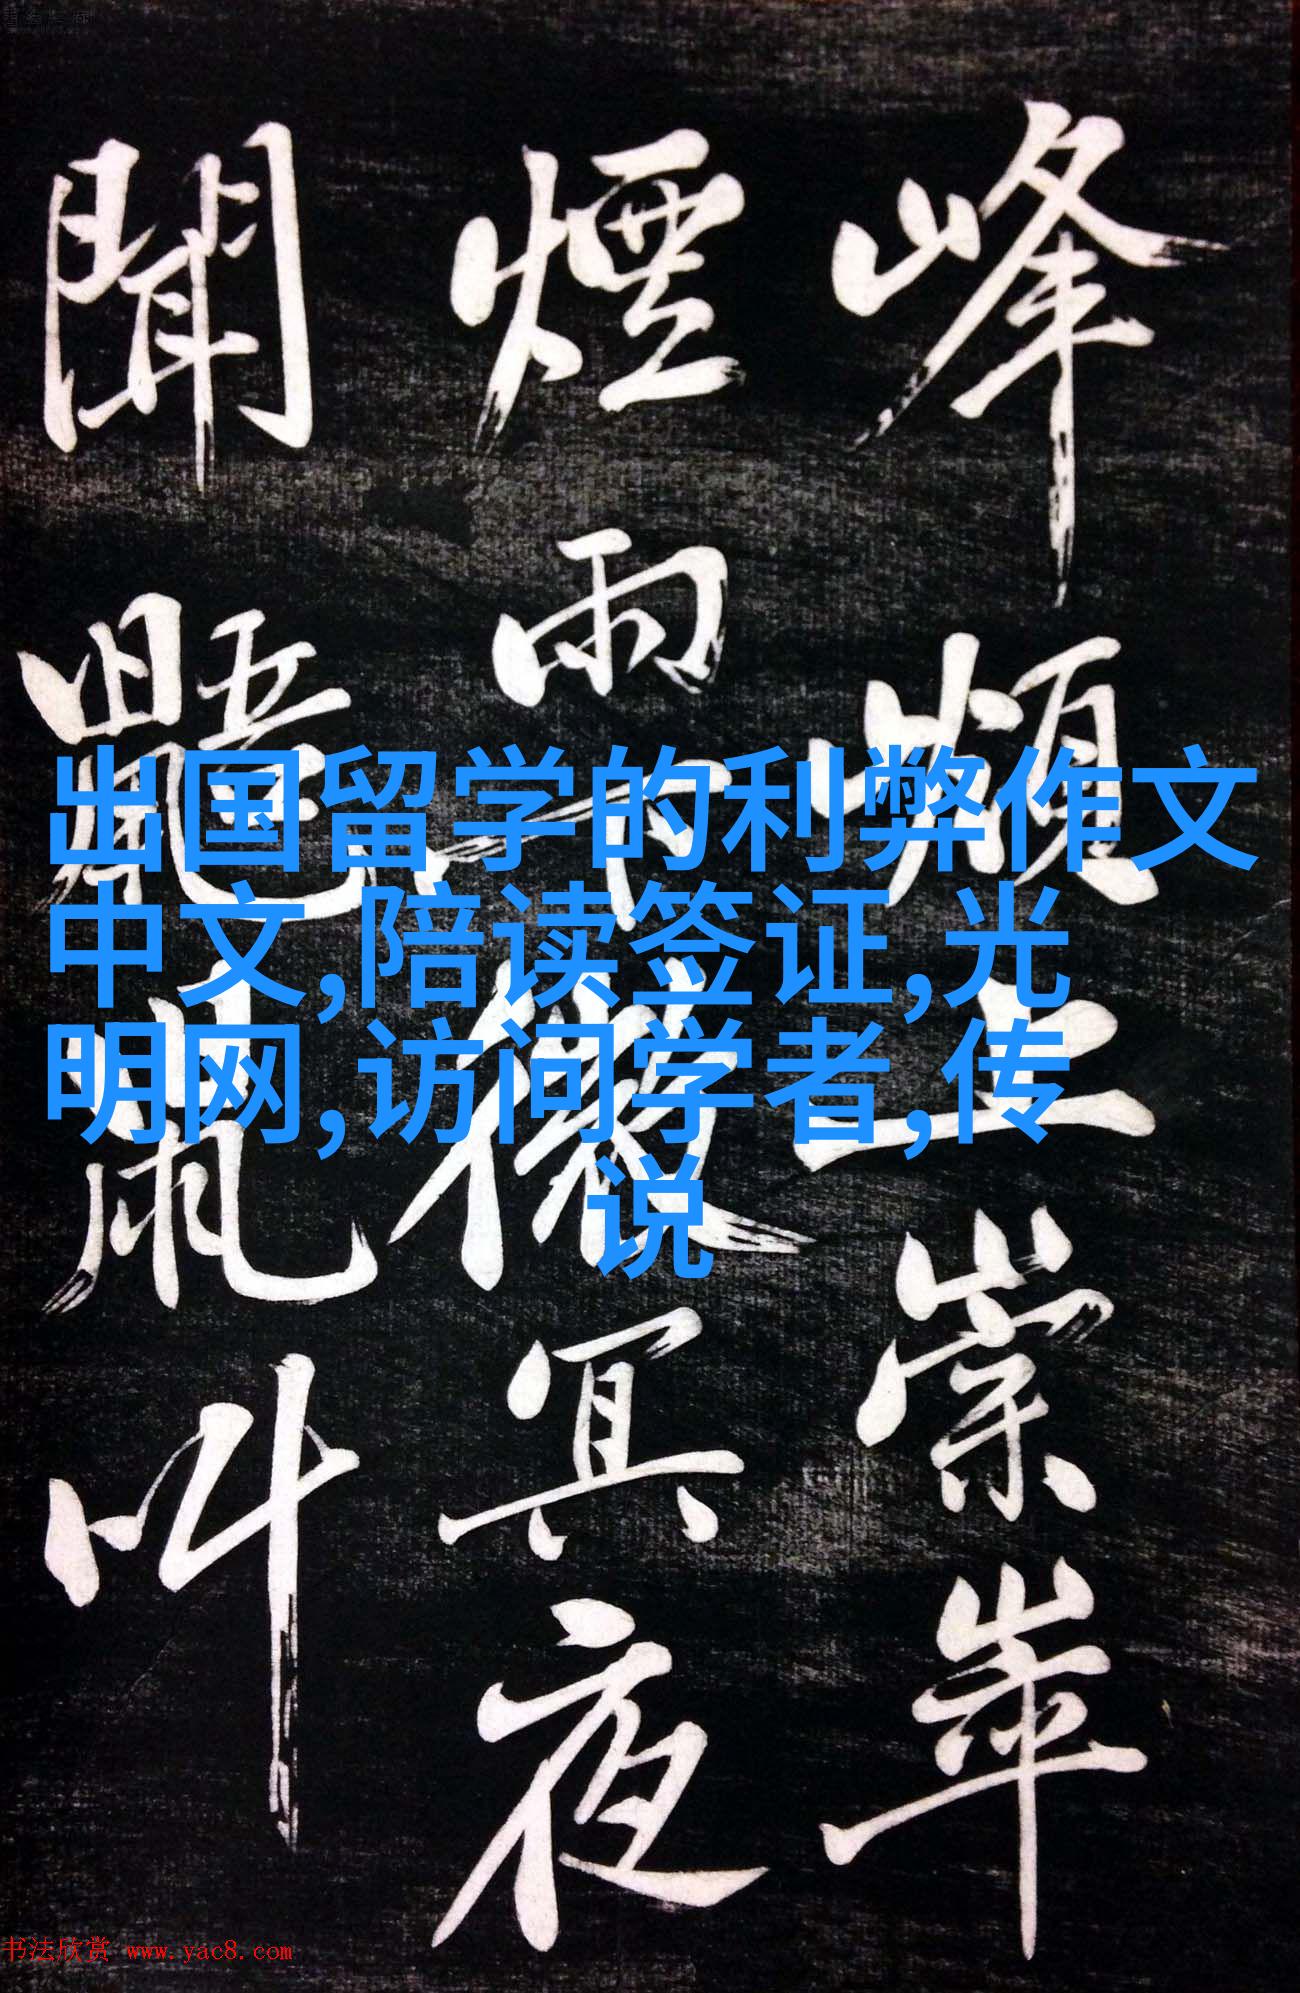 峰頻上崇崒
煙雨下微冥夜
聞鼯鼠叫
出国留学的利弊作文
中文,陪读签证,光
明网,访问学者,传
说
书法欣赏 www.yac8.com